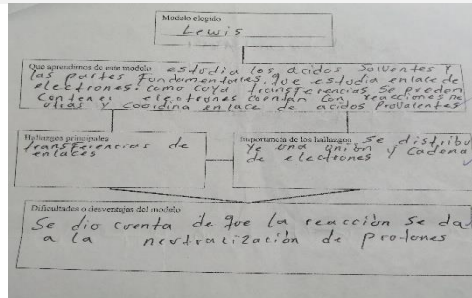 Modelo elegido
Lewis
Que aprendimos de este modelo estudia los acidos solventes y
las partes fundamentales que estudia enlace de
electrones como cuya transferencias se pueden
Contener electrones cuentan con reacciones
otras y coordina enlace de acidos
Hallazgos principales
transferencias de
enlaces
Importancia de los hallazgos se distribu
ye una unión y cadena
de electrones
Dificultades o desventajas del modelo
Se dio cuenta de que la reacción se da
a la neutralización de protones